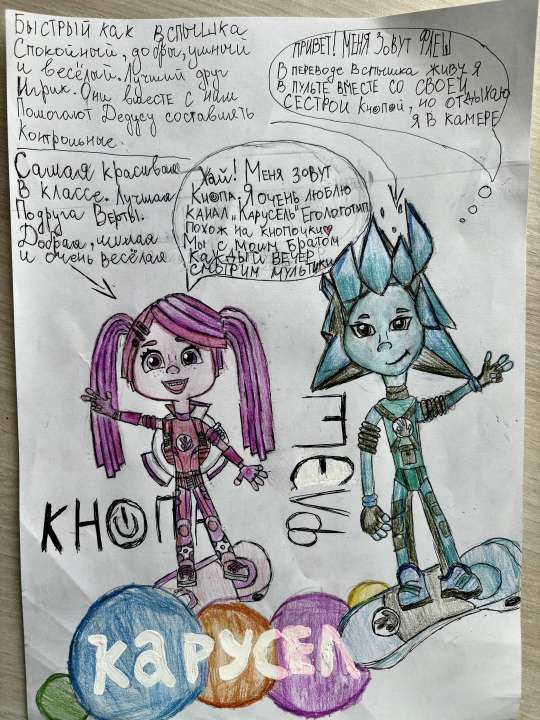 Быстрый как вспышка
Спокойный, добры, умный
и весёлый. Лучший друг
Игрик. Они вместе с ним
Помогают Дедусу составлять
контрольные.
Самая красивая
в классе. Лучшая
Подруга Верты.
Добрая, милая
и очень весёлая
Привет! Меня зовут Флеш
В переводе вспышка живу я
в пульте вместе со своей
сестрой кнопой, но отдыхаю
я в камере
Хай! Меня зовут
Кнопа. Я очень люблю
канал "Карусель" Его логотип
похож на кнопочки
Мы с моим братом
каждый вечер
смотрим мультики
КНОПА
ФЛЕШ
КАРУСЕЛ